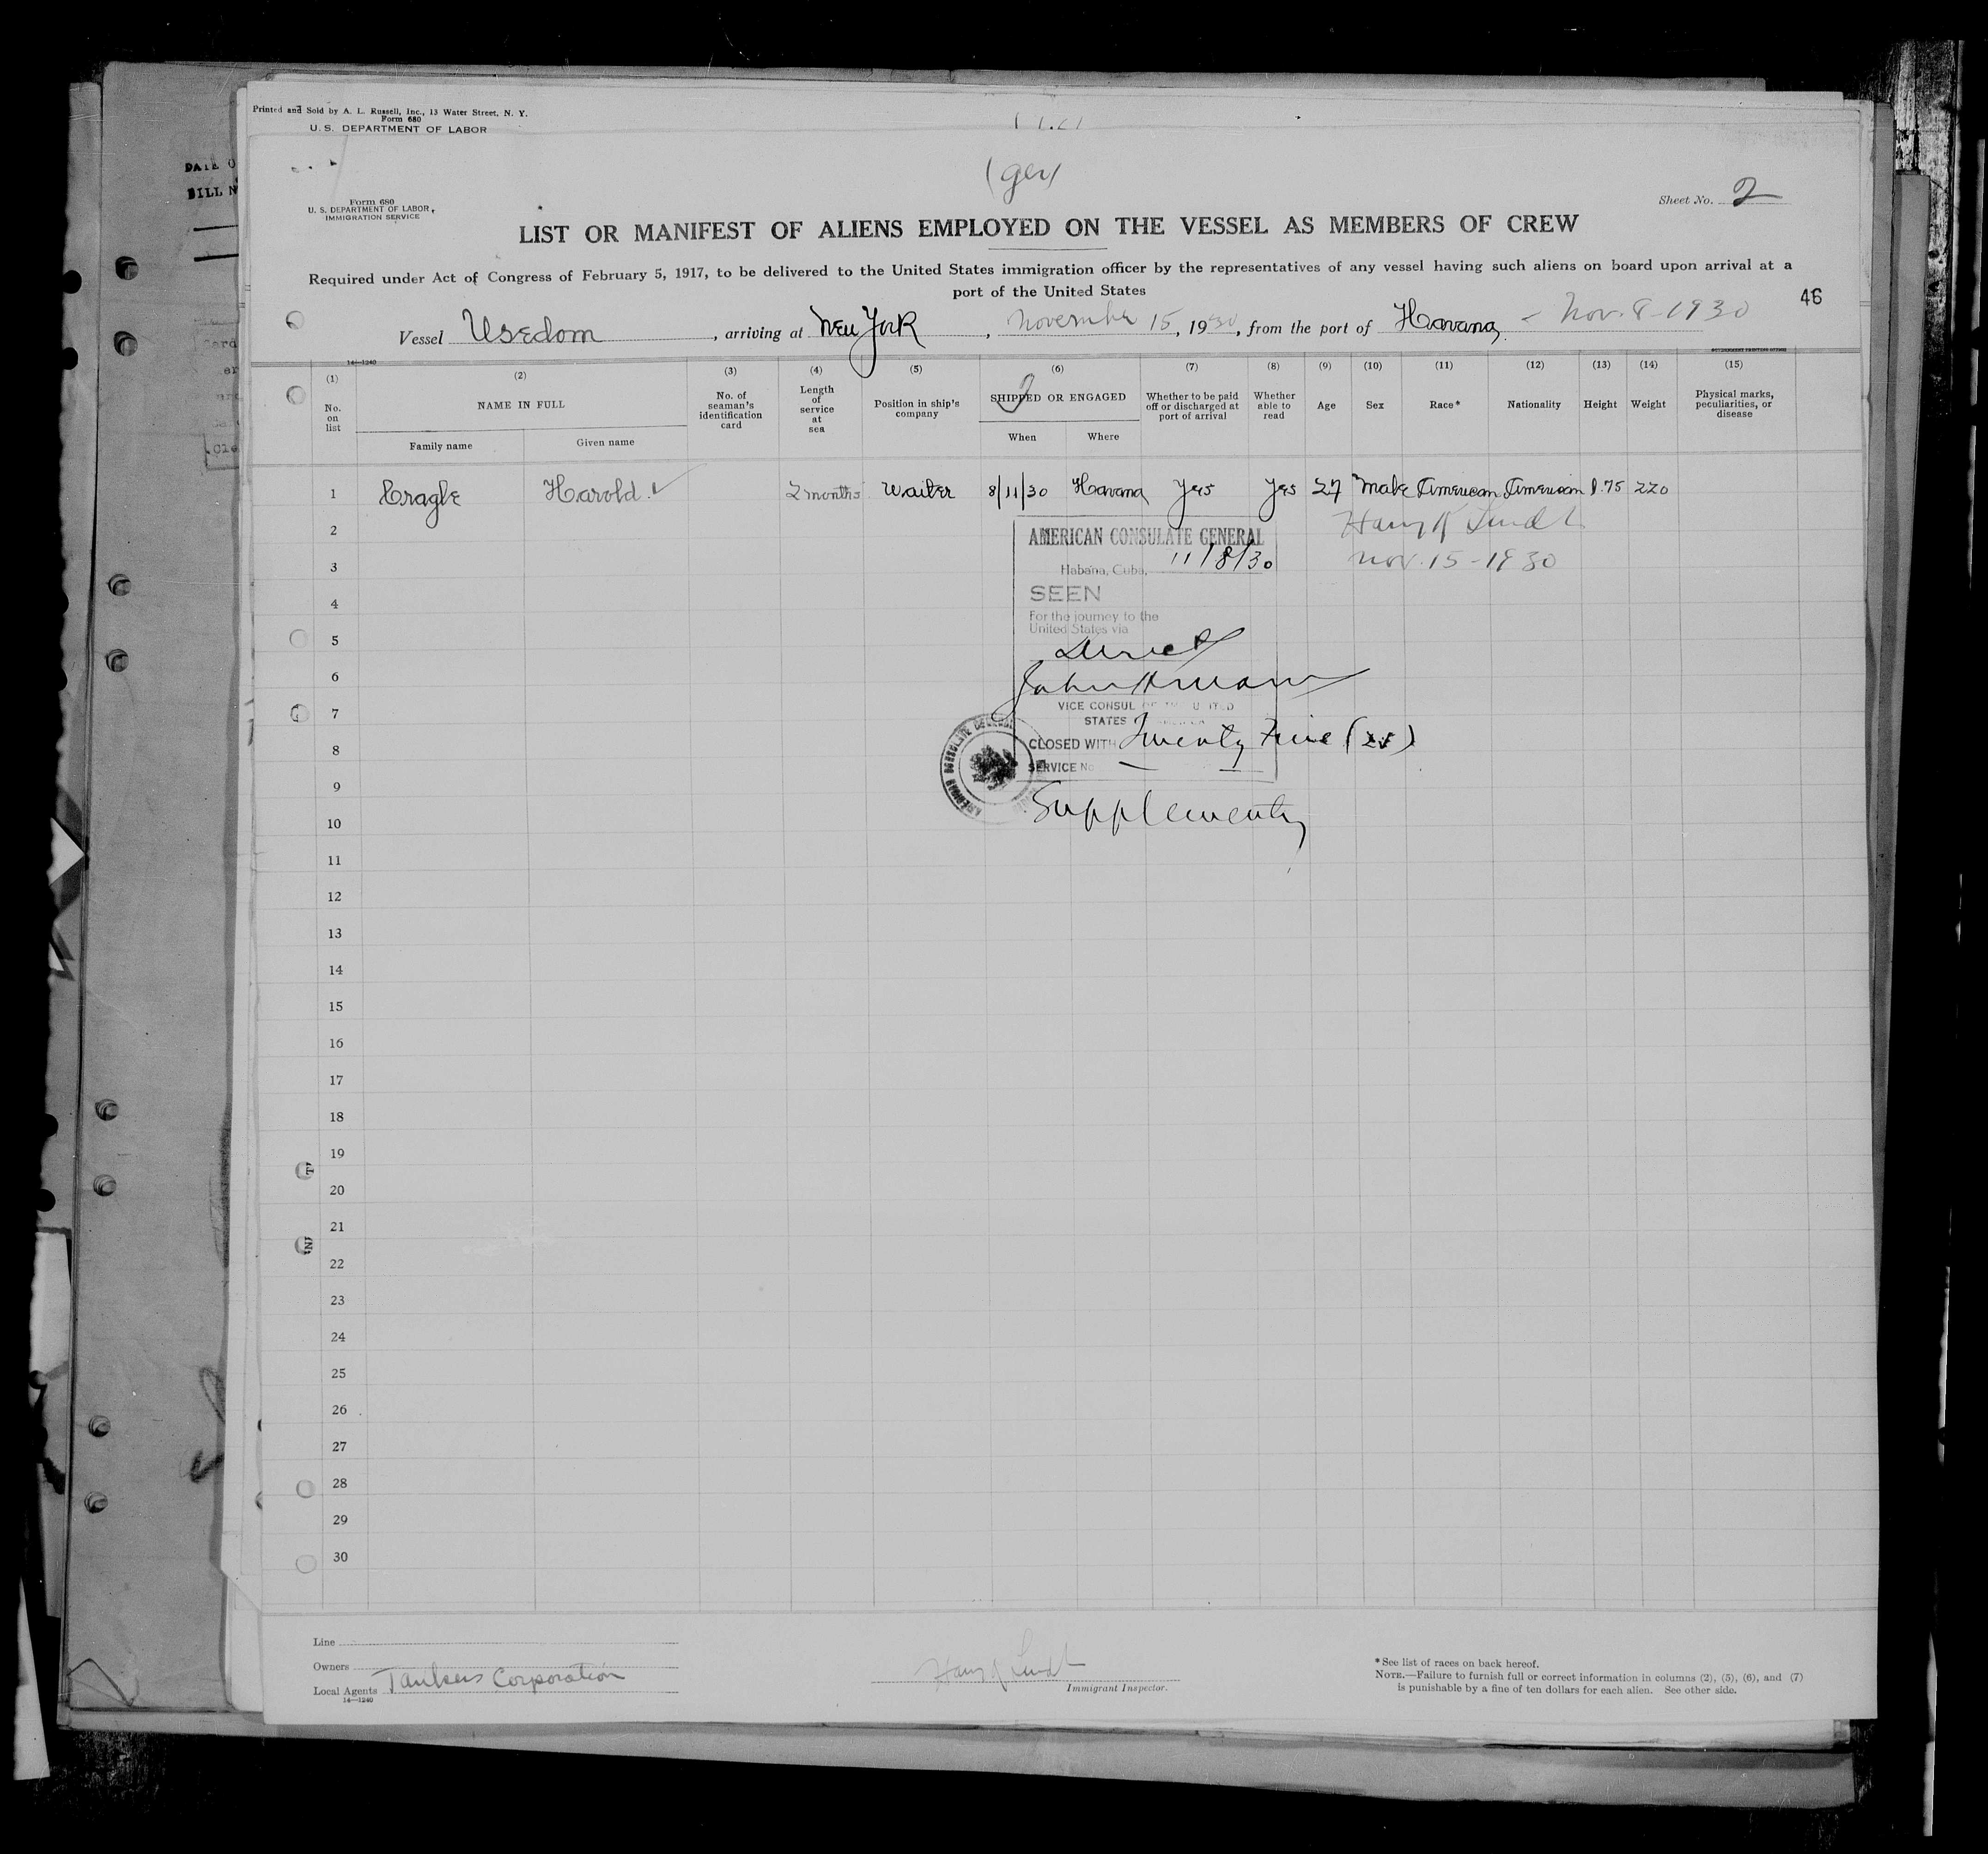 Printed and Sold by A. L. Russell, Inc., 13 Water Street, N. Y.
Form 680
U. S. DEPARTMENT OF LABOR
(ger)
DATE O
BILL N
Form 680
U. S. DEPARTMENT OF LABOR,
IMMIGRATION SERVICE
Sheet No. 2
LIST OR MANIFEST OF ALIENS EMPLOYED ON THE VESSEL AS MEMBERS OF CREW
Required under Act of Congress of February 5, 1917, to be delivered to the United States immigration officer by the representatives of any vessel having such aliens on board upon arrival at a
port of the United States
46
Vessel Usedom, arriving at New York, November 15, 1930, from the port of Havana - Nov. 8-1930
14—1240
(1) (2) (3) (4) (5) (6) (7) (8) (9) (10) (11) (12) (13) (14) (15)
No. on list
NAME IN FULL
Family name
Given name
No. of seaman's identification card
Length of service at sea
Position in ship's company
SHIPPED OR ENGAGED
When
Where
Whether to be paid off or discharged at port of arrival
Whether able to read
Age
Sex
Race*
Nationality
Height
Weight
Physical marks, peculiarities, or disease
1 Cragle Harold 2 months Waiter 8/11/30 Havana Yes Yes 27 Male American American 1.75 220
2 Harry Lundt
3 Nov. 15-1930
AMERICAN CONSULATE GENERAL
Habana, Cuba, 11/8/30
SEEN
For the journey to the
United States via
Direct
VICE CONSUL OF THE UNITED
STATES OF AMERICA
CLOSED WITH Twenty Five (25)
SERVICE No
Supplementy
4
5
6
7
8
9
10
11
12
13
14
15
16
17
18
19
20
21
22
23
24
25
26
27
28
29
30
Line
Owners
Local Agents Tankers Corporation
14—1240
Harry Lundt
Immigrant Inspector.
*See list of races on back hereof.
NOTE.—Failure to furnish full or correct information in columns (2), (5), (6), and (7)
is punishable by a fine of ten dollars for each alien. See other side.